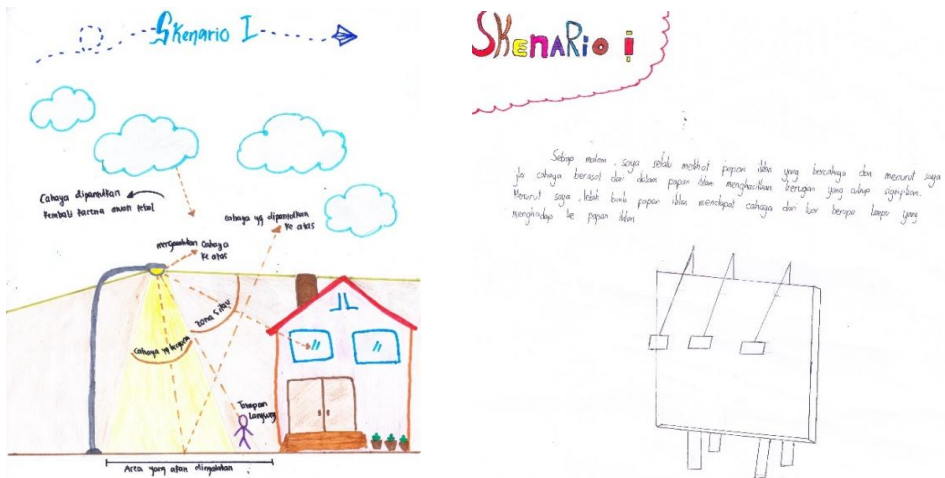 Skenario I
Cahaya dipantulkan
kembali karena awan tebal
cahaya yg dipantulkan
ke atas
Cahaya
ke atas
zona silau
Cahaya yg berguna
Tumpan
Langsung
Area yang akan
SKENARIO i
Setiap malam, saya selalu melihat papan iklan yang bercahaya dan menurut saya
cahaya berasal dari dalam papan iklan menghasilkan kerugian yang cukup
Menurut saya, lebih baik papan iklan mendapat cahaya dari luar berupa lampu yang
menghadap ke papan iklan